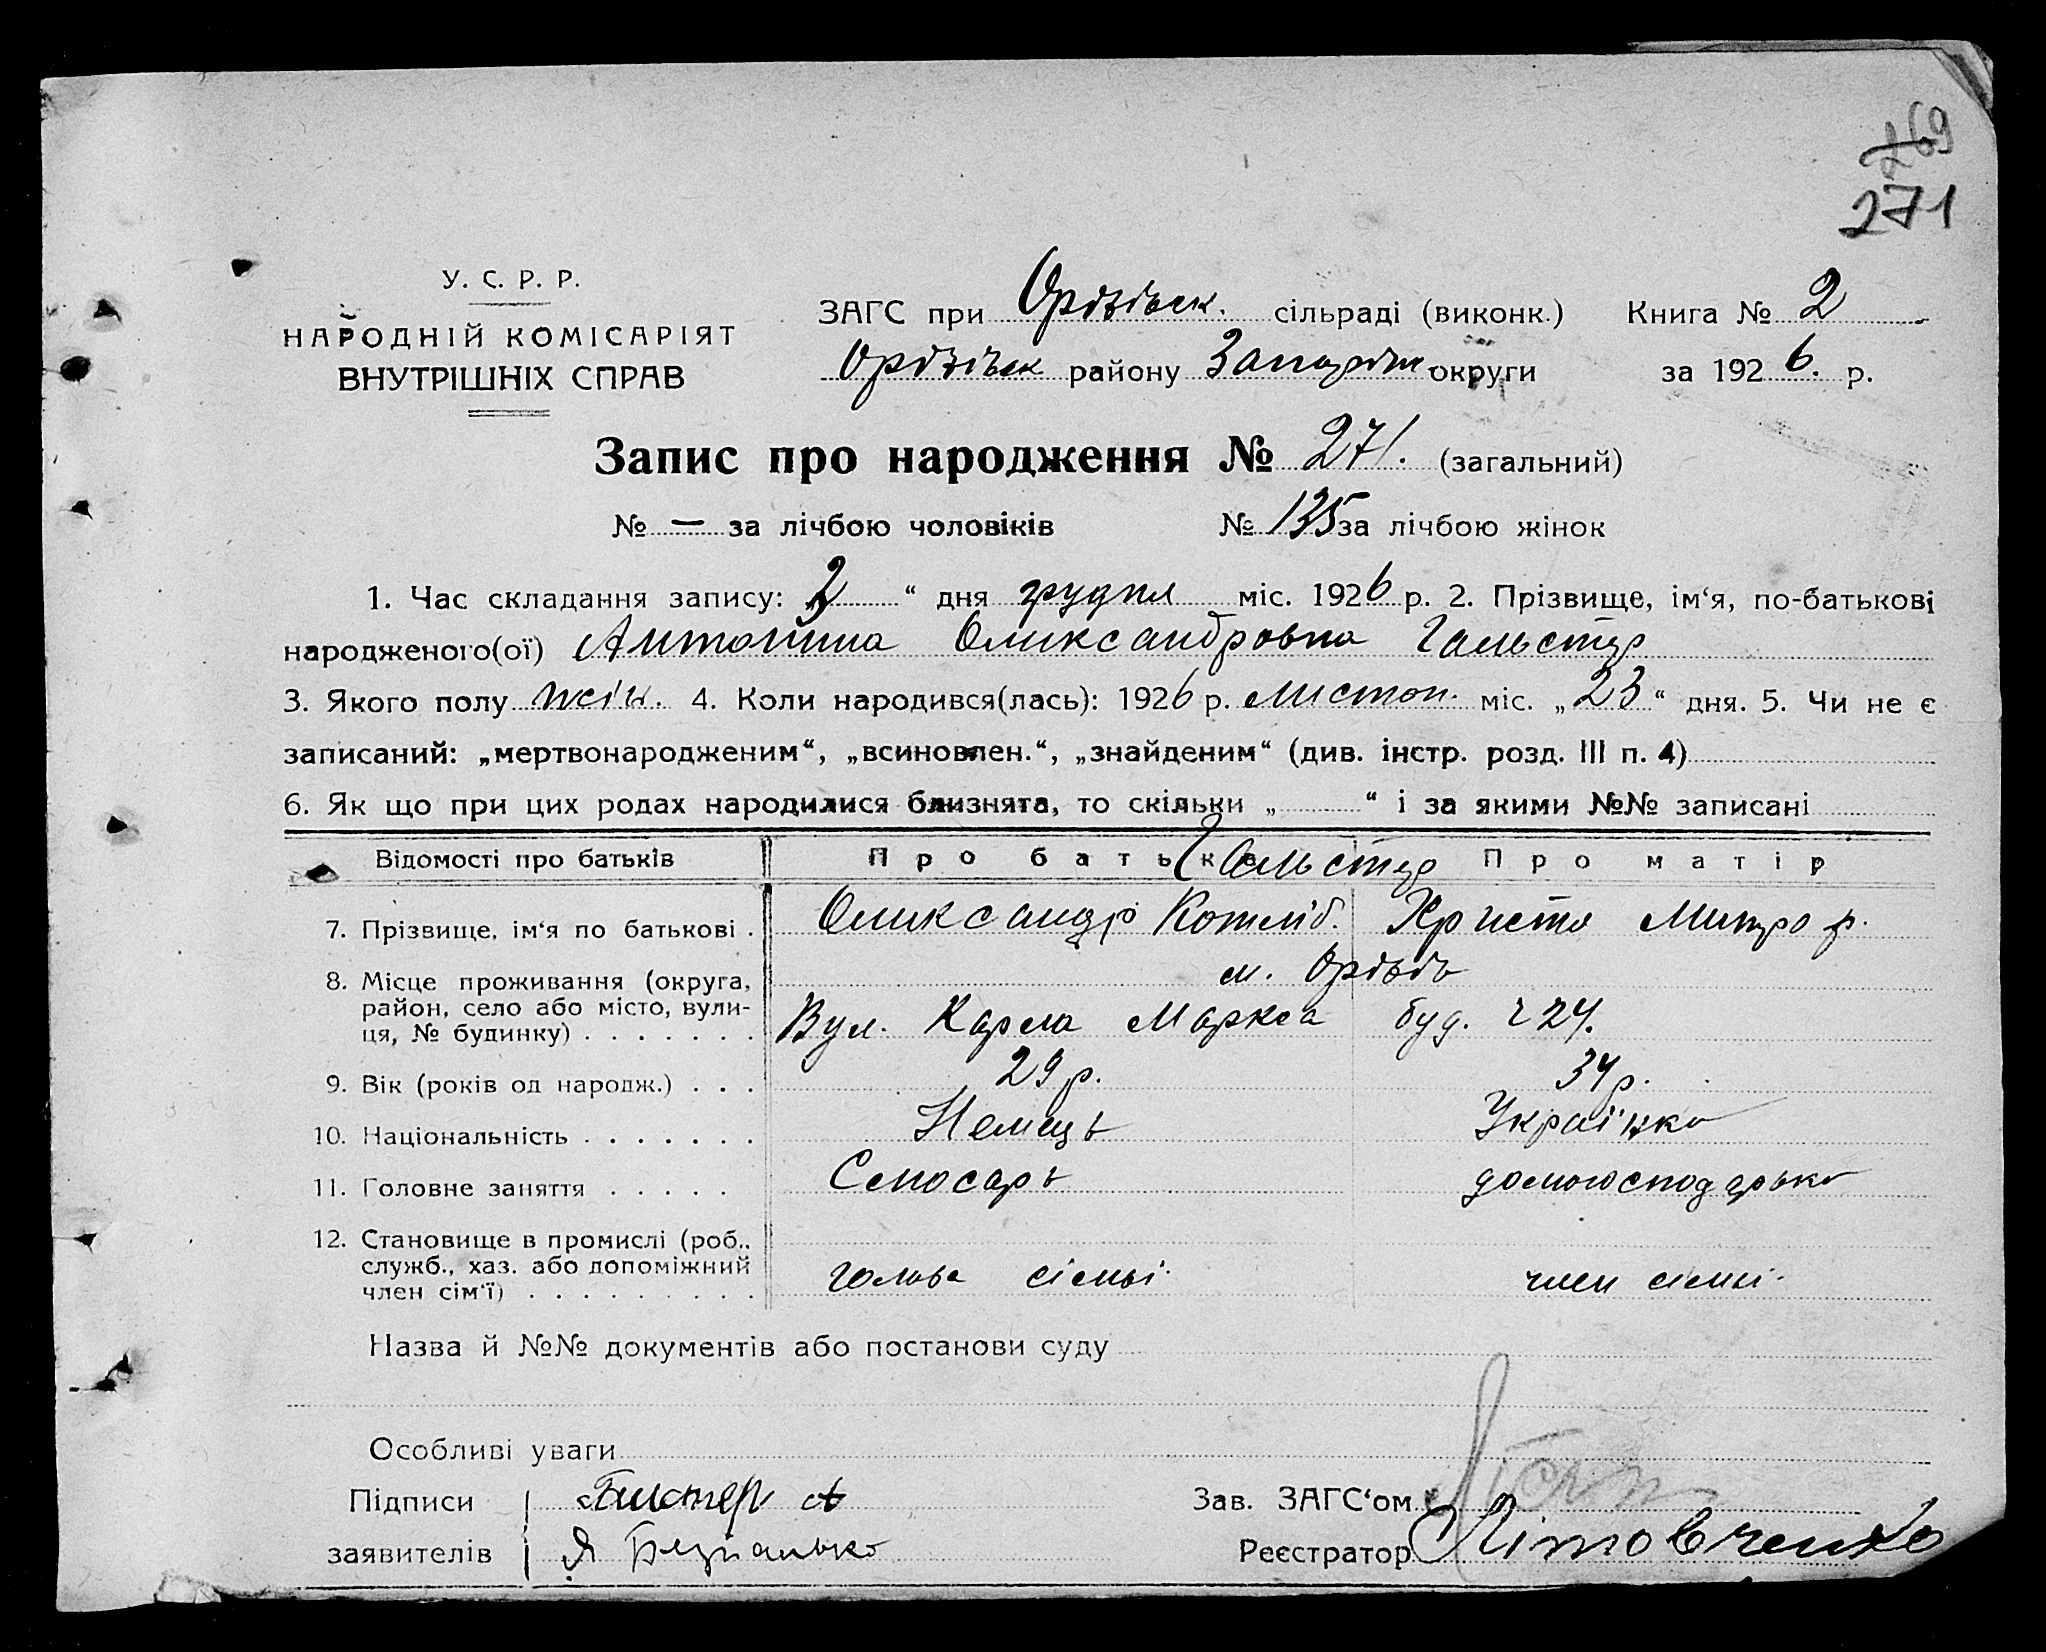 269
271
У. С. Р. Р.
НАРОДНІЙ КОМІСАРІЯТ
ВНУТРІШНІХ СПРАВ
ЗАГС при Орізівськ. сільраді (виконк.) Книга № 2
Орізівськ району Запоріж округи за 1926. р.
Запис про народження № 271. (загальний)
№ — за лічбою чоловіків № 135 за лічбою жінок
1. Час складання запису: 2 “ дня грудня міс. 1926 р. 2. Прізвище, ім‘я, по-батькові
народженого(ої) Антонина Олександровна Гальстер
3. Якого полу жін. 4. Коли народився(лась): 1926 р. листоп. міс. „23“ дня. 5. Чи не є
записаний: „мертвонародженим“, „всиновлен.“, „знайденим“ (див. інстр. розд. III п. 4)
6. Як що при цих родах народилися близнята, то скільки „ “ і за якими №№ записані
Відомості про батьків Про батька Гальстер Про матір
7. Прізвище, ім‘я по батькові . Олександр Котліб. Христя Митроф.
8. Місце проживання (округа, м. Орізів
район, село або місто, вули-
ця, № будинку) . . . . . . . Вул. Карла Маркса буд. ч 24.
9. Вік (років од народж.) . . . 29 р. 34 р.
10. Національність . . . . . . . Немець Українка
11. Головне заняття . . . . . Слюсарь домогосподарька
12. Становище в промислі (роб.,
служб., хаз. або допоміжний
член сім‘ї) . . . . . . . . . голова сімьі член сімьі.
Назва й №№ документів або постанови суду
Особливі уваги
Підписи А
Зав. ЗАГС‘ом
заявителів Я
Реєстратор Літовченко